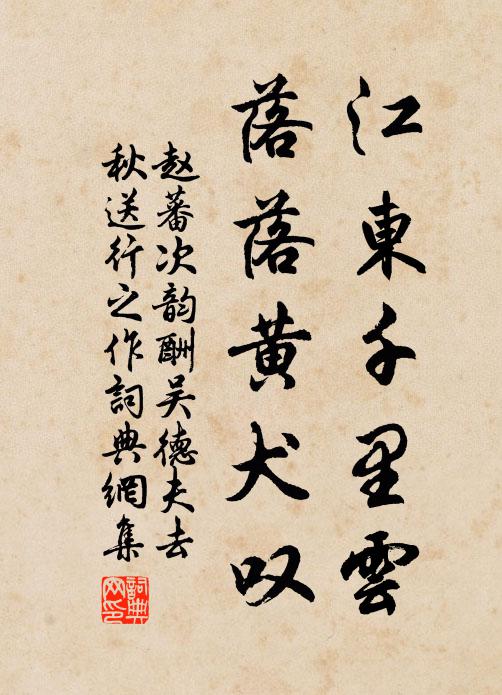 江東千里雲
落落黄犬叹
赵蕃次韵酬吴德夫去
秋送行之作詞典網集